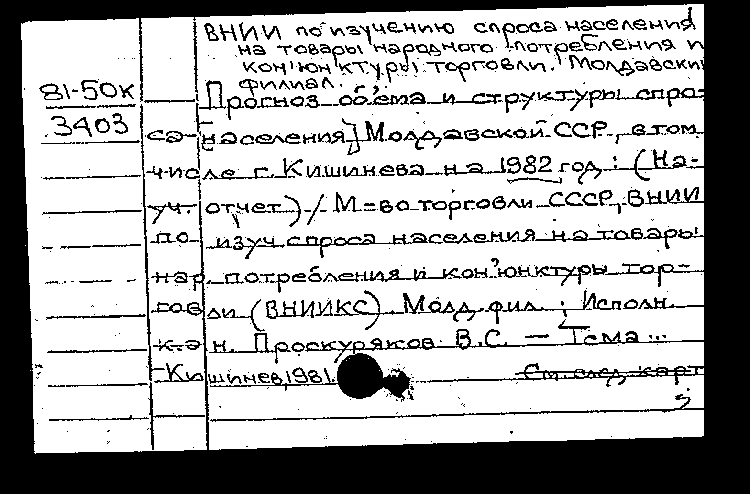 ВНИИ по изучению спроса населения
на товары народного потребления и
кон'юнктуры торговли. Молдавски
филиал.
81-50к
Прогноз об'ема и структуры спро-
3403
са [населения] Молдавской ССР, в том
числе г. Кишинева на 1982 год : (На-
уч. отчет) / М-во торговли СССР, ВНИИ
по изуч спроса населения на товары
нар. потребления и кон'юнктуры тор-
говли (ВНИИКС). Молд. фил. ; Исполн.
к.э н. Проскуряков В.С. — Тема ...
Кишинев, 1981.
См. след. карт